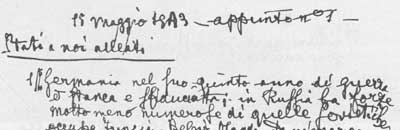 15 maggio 1943 - appunto n° 1 -
Stati a noi alleati
1) Germania nel suo quinto anno di guerra
è stanca e sfiduciata; in Russia ha forze
molto meno numerose di quelle sovietiche
occupa